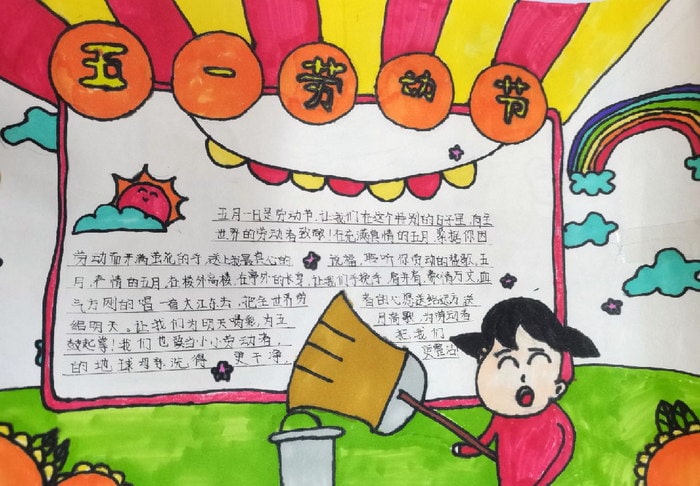 五一劳动节
五月一日是劳动节,让我们在这个特别的日子里,向全
世界的劳动者致敬!在充满真情的五月,紧握你因
劳动而布满茧花的手,送上我最真心的 祝福,聆听你劳动的赞歌,五
月,声情的五月,在校外高楼,在野外的长亭,让我们手挽手,肩并肩,豪情万丈,血
气方刚的唱一首大江东去,把在世界劳 者的心愿送给远方,送
给明天。让我们为明天喝彩,为五 月高歌,为劳动者
鼓起掌!我们也要当小小劳动者, 把我们
的地球母亲洗得 更干净, 更整洁